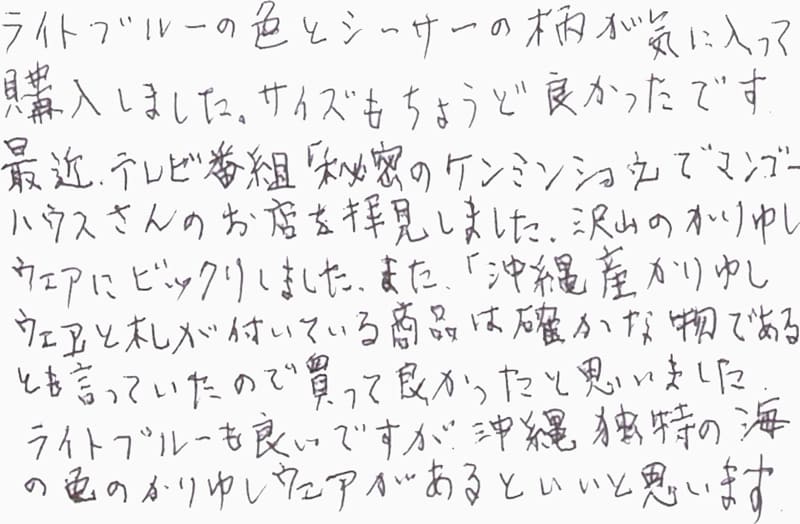 ライトブルーの色とシーサーの柄が気に入って
購入しました。サイズもちょうど良かったです
最近、テレビ番組「秘密のケンミンショウでマンゴー
ハウスさんのお店を拝見しました、沢山のかりゆし
ウェアにビックリしました、また、「沖縄産かりゆし
ウェアと札が付いている商品は確かな物である
とも言っていたので買って良かったと思いました、
ライトブルーも良いですが、沖縄独特の海
の色のかりゆしウェアがあるといいと思います